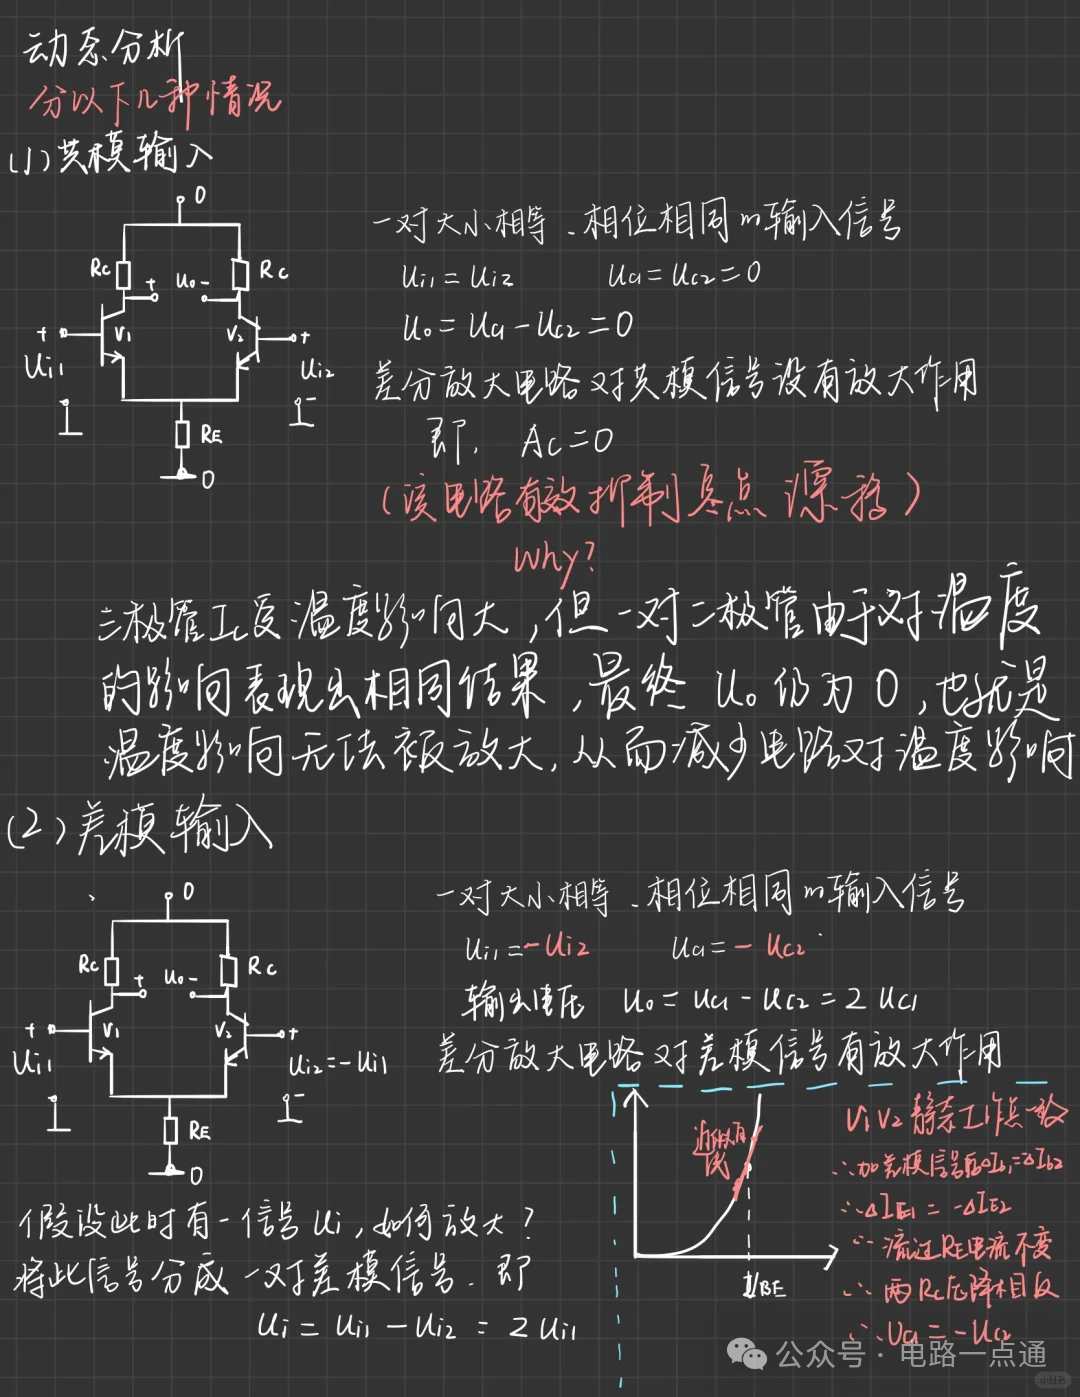 动态分析
分以下几种情况
(1)共模输入
0
Rc
+ uo -
Rc
+
V1
V2
+
Ui1
Ui2
-
RE
0
一对大小相等、相位相同的输入信号
Ui1 = Ui2
Uc1 = Uc2 = 0
Uo = Uc1 - Uc2 = 0
差分放大电路对共模信号没有放大作用
即. Ac = 0
(该电路有效抑制零点漂移)
Why?
三极管Ic受温度影响大,但一对二极管由于对温度
的影响表现出相同结果,最终 Uo仍为0,也就是
温度影响无法被放大,从而减少电路对温度影响
(2)差模输入
0
Rc
+ uo -
Rc
+
V1
V2
+
Ui1
Ui2=-Ui1
-
RE
0
一对大小相等、相位相同的输入信号
Ui1 = -Ui2
Uc1 = - Uc2
输出电压 Uo = Uc1 - Uc2 = 2 Uc1
差分放大电路对差模信号有放大作用
近似直线
UBE
V1V2静态工作点一致
∴加差模信号后ΔIb1=ΔIb2
∴ΔIE1 = -ΔIE2
∵流过RE电流不变
∴两Rc压降相反
∴Uc1 = -Uc2
假设此时有一信号Ui,如何放大?
将此信号分成一对差模信号.即
Ui = Ui1 - Ui2 = 2 Ui1
公众号·电路一点通
小红书